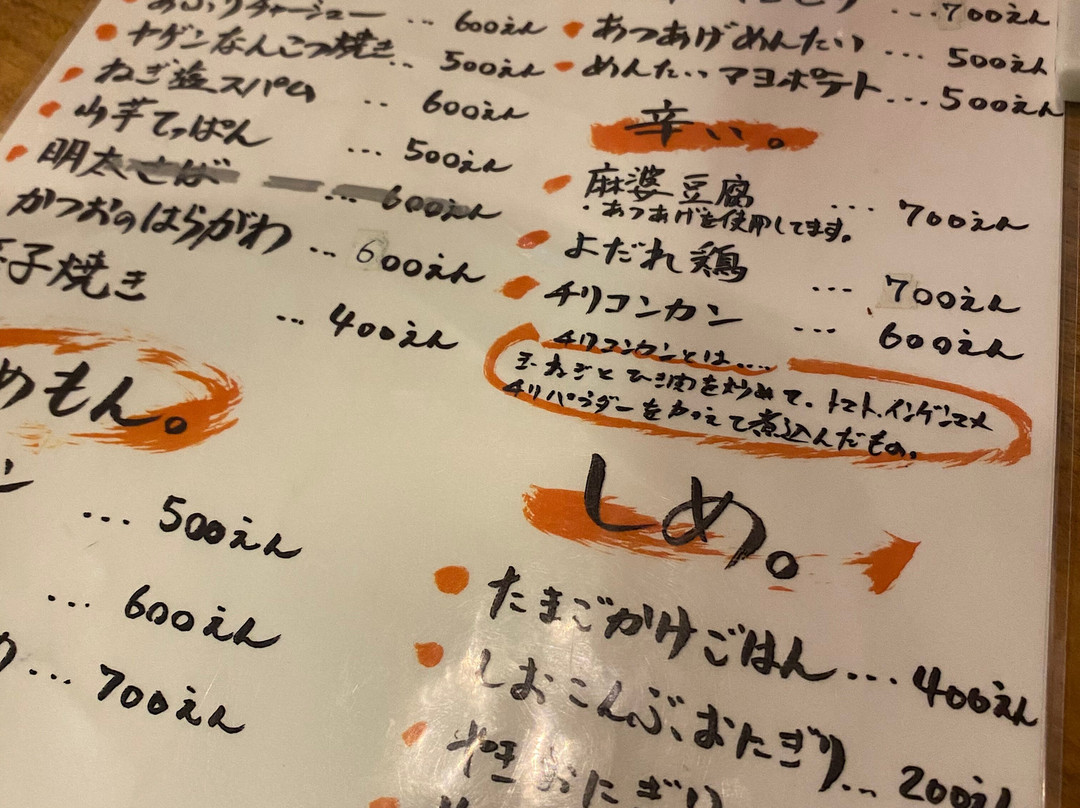 あぶりチャーシュー … 600えん
ヤゲンなんこつ焼き… 500えん
ねぎ塩スパム … 600えん
山芋てっぱん … 500えん
明太さば … 600えん
かつおのはらがわ … 600えん
子焼き … 400えん
めもん。
… 500えん
… 600えん
… 700えん
…700えん
あつあげめんたい … 500えん
めんたいマヨポテト…500えん
辛い。
麻婆豆腐 … 700えん
・あつあげを使用してます。
よだれ鶏 … 700えん
チリコンカン … 600えん
チリコンカンとは……
玉ねぎとひき肉を炒めて、トマト、インゲンマメ
チリパウダーをかえて煮込んだもの。
しめ。
たまごかけごはん…400えん
しおこんぶおにぎり…200えん
やきおにぎり